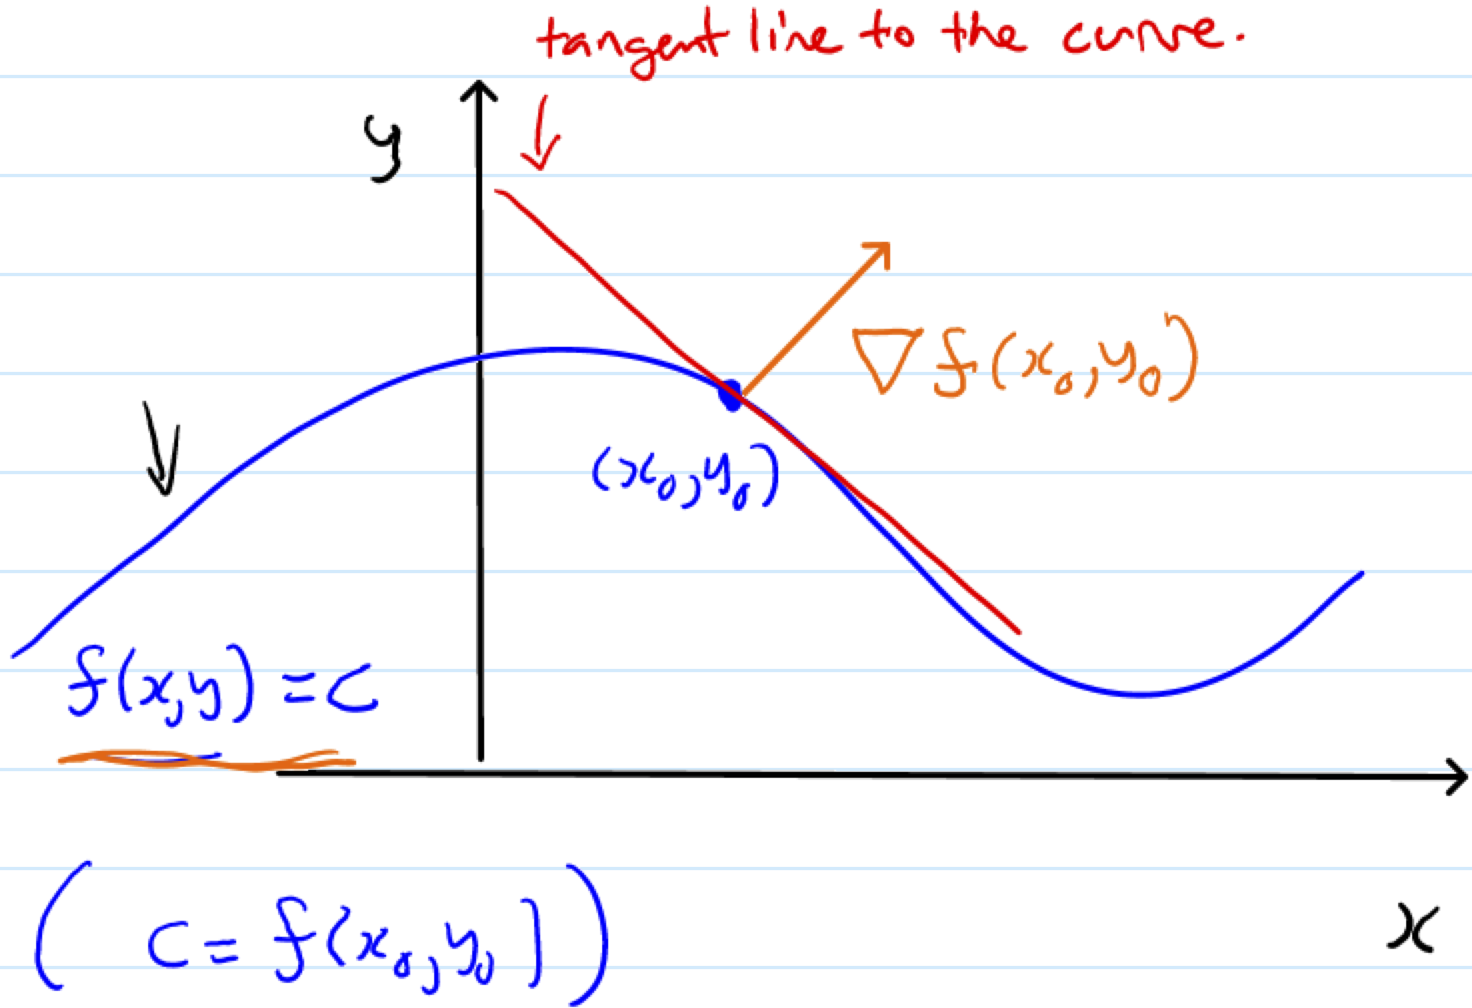 tangent line to the curve.
y
∇f(x₀,y₀)
(x₀,y₀)
f(x,y)=c
x
(c=f(x₀,y₀])